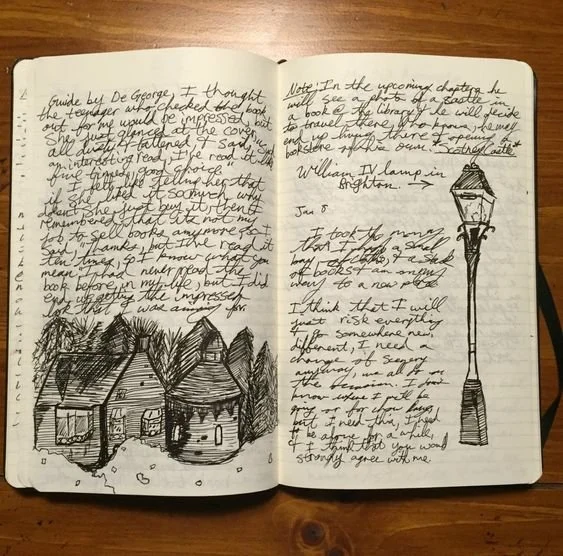 Guide by De George, I thought
the teenager who checked the book
out for me would be impressed, but
She just glanced at the cover,
all lively & fattened, & said,
an interesting read, I've read it like
five times, good choice."
I felt like telling her that
if she liked it so much why
doesn't she just buy it, then I
remembered that its not my
job to sell books anymore so I
said "Thanks, but I've read it
ten times, so I know what you
mean." I had never read the
book before in my life, but I did
end up getting the impressed
look that I was aiming for.
Note: In the upcoming chapters he
will see a photo of a castle in
a book @ the library & he will decide
to travel there, who knows, he may
end up living there & opening a
bookstore of his own. *Scotney Castle*
William IV lamp in
Brighton. →
Jan 8
I took the money
that I a small
bag of clothes, & a stack
of books & am on my
way to a new place
I think that I will
just risk everything
for somewhere new,
different, I need a
change of scenery
anyway, we all do on
the occasion. I don't
know where I will be
or for how long,
but I need this, I need
to be alone for a while,
& I think that you would
strongly agree with me.